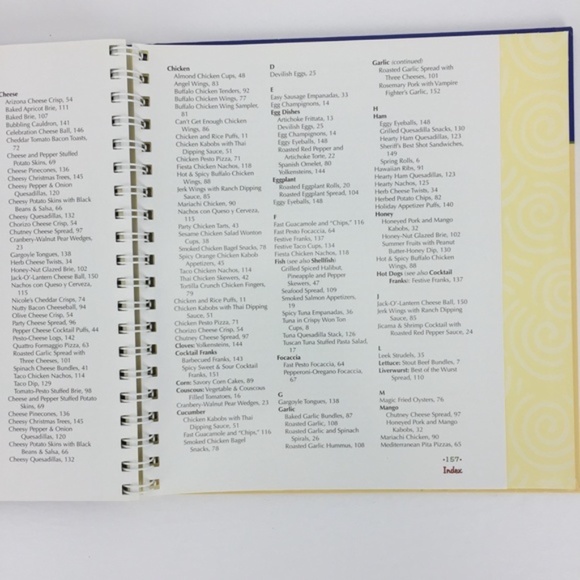 Cheese
Arizona Cheese Crisp, 54
Baked Apricot Brie, 111
Baked Brie, 107
Bubbling Cauldron, 141
Celebration Cheese Ball, 146
Cheddar Tomato Bacon Toasts,
72
Cheese and Pepper Stuffed
Potato Skins, 69
Cheese Pinecones, 136
Cheesy Christmas Trees, 145
Cheesy Pepper & Onion
Quesadillas, 120
Cheesy Potato Skins with Black
Beans & Salsa, 66
Cheesy Quesadillas, 132
Chorizo Cheese Crisp, 54
Chutney Cheese Spread, 97
Cranbery-Walnut Pear Wedges,
23
Gargoyle Tongues, 138
Herb Cheese Twists, 34
Honey-Nut Glazed Brie, 102
Jack-O'-Lantern Cheese Ball, 150
Nachos con Queso y Cerveza,
115
Nicole's Cheddar Crisps, 74
Nutty Bacon Cheeseball, 94
Olive Cheese Crisp, 54
Party Cheese Spread, 96
Pepper Cheese Cocktail Puffs, 44
Pesto-Cheese Logs, 142
Quattro Formaggio Pizza, 63
Roasted Garlic Spread with
Three Cheeses, 101
Spinach Cheese Bundles, 41
Taco Cheese Nachos, 114
Taco Dip, 129
Tomato-Pesto Stuffed Brie, 98
Cheese and Pepper Stuffed Potato
Skins, 69
Cheese Pinecones, 136
Cheesy Christmas Trees, 145
Cheesy Pepper & Onion
Quesadillas, 120
Cheesy Potato Skins with Black
Beans & Salsa, 66
Cheesy Quesadillas, 132
Chicken
Almond Chicken Cups, 48
Angel Wings, 83
Buffalo Chicken Tenders, 92
Buffalo Chicken Wings, 77
Buffalo Chicken Wing Sampler,
81
Can't Get Enough Chicken
Wings, 86
Chicken and Rice Puffs, 11
Chicken Kabobs with Thai
Dipping Sauce, 51
Chicken Pesto Pizza, 71
Fiesta Chicken Nachos, 118
Hot & Spicy Buffalo Chicken
Wings, 88
Jerk Wings with Ranch Dipping
Sauce, 85
Mariachi Chicken, 90
Nachos con Queso y Cerveza,
115
Party Chicken Tarts, 43
Sesame Chicken Salad Wonton
Cups, 38
Smoked Chicken Bagel Snacks, 78
Spicy Orange Chicken Kabob
Appetizers, 45
Taco Chicken Nachos, 114
Thai Chicken Skewers, 42
Tortilla Crunch Chicken Fingers,
79
Chicken and Rice Puffs, 11
Chicken Kabobs with Thai Dipping
Sauce, 51
Chicken Pesto Pizza, 71
Chorizo Cheese Crisp, 54
Chutney Cheese Spread, 97
Cloves: Yolkensteins, 144
Cocktail Franks
Barbecued Franks, 143
Spicy Sweet & Sour Cocktail
Franks, 151
Corn: Savory Corn Cakes, 89
Couscous: Vegetable & Couscous
Filled Tomatoes, 16
Cranberry-Walnut Pear Wedges, 23
Cucumber
Chicken Kabobs with Thai
Dipping Sauce, 51
Fast Guacamole and "Chips," 116
Smoked Chicken Bagel
Snacks, 78
D
Devilish Eggs, 25
E
Easy Sausage Empanadas, 33
Egg Champignons, 14
Egg Dishes
Artichoke Frittata, 13
Devilish Eggs, 25
Egg Champignons, 14
Eggy Eyeballs, 148
Roasted Red Pepper and
Artichoke Torte, 22
Spanish Omelet, 80
Yolkensteins, 144
Eggplant
Roasted Eggplant Rolls, 20
Roasted Eggplant Spread, 104
Eggy Eyeballs, 148
F
Fast Guacamole and "Chips," 116
Fast Pesto Focaccia, 64
Festive Franks, 137
Festive Taco Cups, 134
Fiesta Chicken Nachos, 118
Fish (see also Shellfish)
Grilled Spiced Halibut,
Pineapple and Pepper
Skewers, 47
Seafood Spread, 109
Smoked Salmon Appetizers,
19
Spicy Tuna Empanadas, 36
Tuna in Crispy Won Ton
Cups, 8
Tuna Quesadilla Stack, 126
Tuscan Tuna Stuffed Pasta Salad,
17
Focaccia
Fast Pesto Focaccia, 64
Pepperoni-Oregano Focaccia,
67
G
Gargoyle Tongues, 138
Garlic
Baked Garlic Bundles, 87
Roasted Garlic, 108
Roasted Garlic and Spinach
Spirals, 26
Roasted Garlic Hummus, 108
Garlic (continued)
Roasted Garlic Spread with
Three Cheeses, 101
Rosemary Pork with Vampire
Fighter's Garlic, 152
H
Ham
Eggy Eyeballs, 148
Grilled Quesadilla Snacks, 130
Hearty Ham Quesadillas, 123
Sheriff's Best Shot Sandwiches,
149
Spring Rolls, 6
Hawaiian Ribs, 91
Hearty Ham Quesadillas, 123
Hearty Nachos, 125
Herb Cheese Twists, 34
Herbed Potato Chips, 82
Holiday Appetizer Puffs, 140
Honey
Honeyed Pork and Mango
Kabobs, 32
Honey-Nut Glazed Brie, 102
Summer Fruits with Peanut
Butter-Honey Dip, 130
Hot & Spicy Buffalo Chicken
Wings, 88
Hot Dogs (see also Cocktail
Franks): Festive Franks, 137
J
Jack-O'-Lantern Cheese Ball, 150
Jerk Wings with Ranch Dipping
Sauce, 85
Jicama & Shrimp Cocktail with
Roasted Red Pepper Sauce, 24
L
Leek Strudels, 35
Lettuce: Stout Beef Bundles, 7
Liverwurst: Best of the Wurst
Spread, 110
M
Magic Fried Oysters, 76
Mango
Chutney Cheese Spread, 97
Honeyed Pork and Mango
Kabobs, 32
Mariachi Chicken, 90
Mediterranean Pita Pizzas, 65
•157•
Index